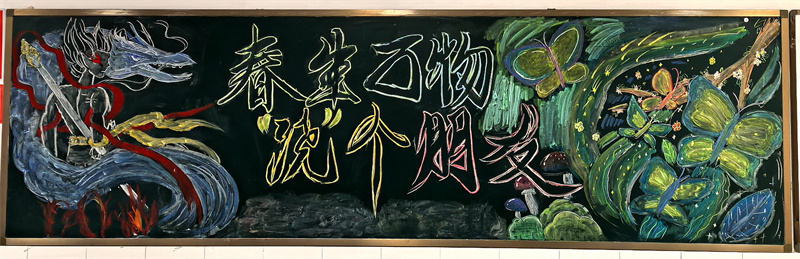 春生万物
“浇”个朋友